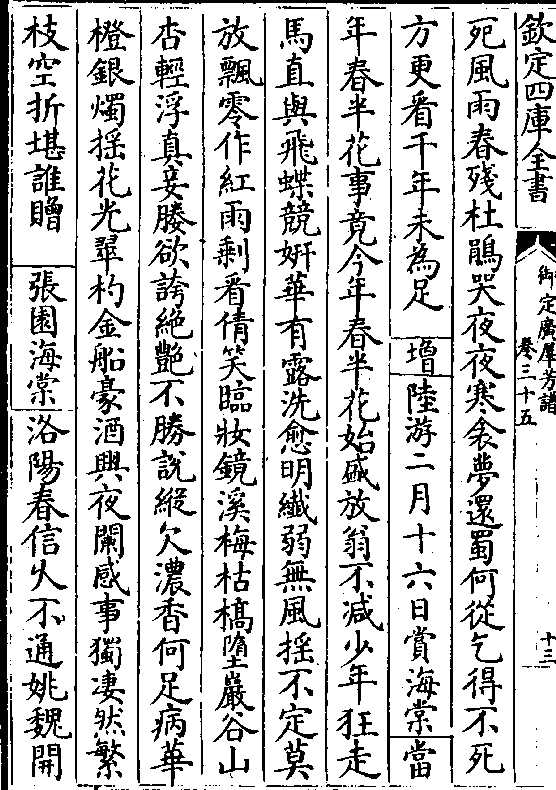 欽定四庫全書
御定廣羣芳譜
卷三十五
十三
死風雨春殘杜鵑哭夜夜寒衾夢還蜀何從乞得不死
方更看千年未為足 增 陸游二月十六日賞海棠 當
年春半花事竟今年春半花始盛放翁不減少年狂走
馬直與飛蝶競妍華有露洗愈明纖弱無風揺不定莫
放飄零作紅雨剩看倩笑臨妝鏡溪梅枯槁墮巖谷山
杏輕浮真妾媵欲誇絶艶不勝說縱欠濃香何足病華
橙銀燭揺花光翠杓金船豪酒興夜闌感事獨凄然繁
枝空折堪誰贈 張園海棠 洛陽春信久不通姚魏開